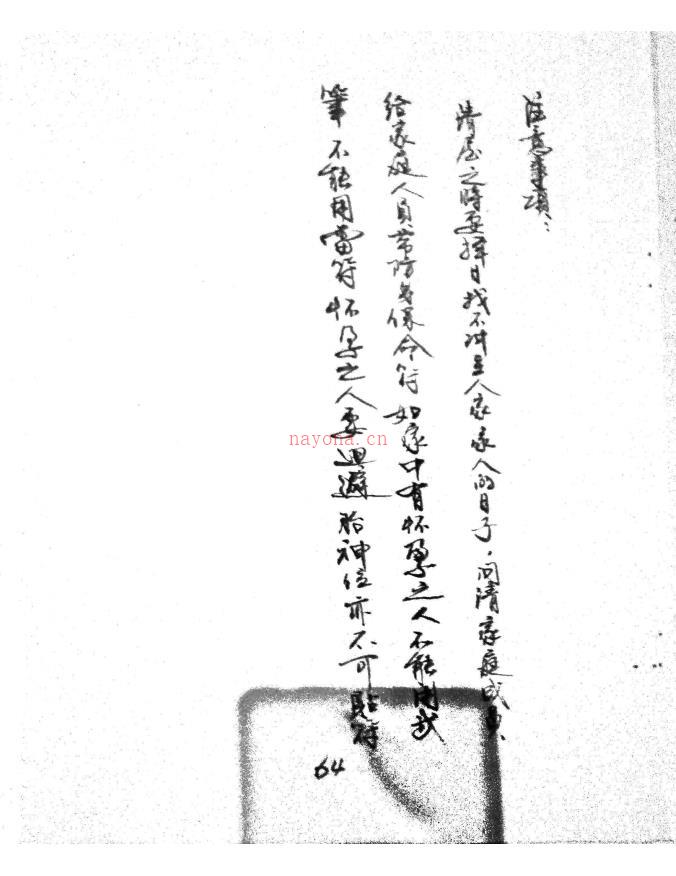 注意事項：
清屋之時要擇日找不冲主人家家人的日子，问清家庭成員、
给家庭人員带防身保命符 如家中有怀孕之人不能用武
筆 不能用雷符 怀孕之人要迴避 胎神位亦不可貼符
64
nayona.cn